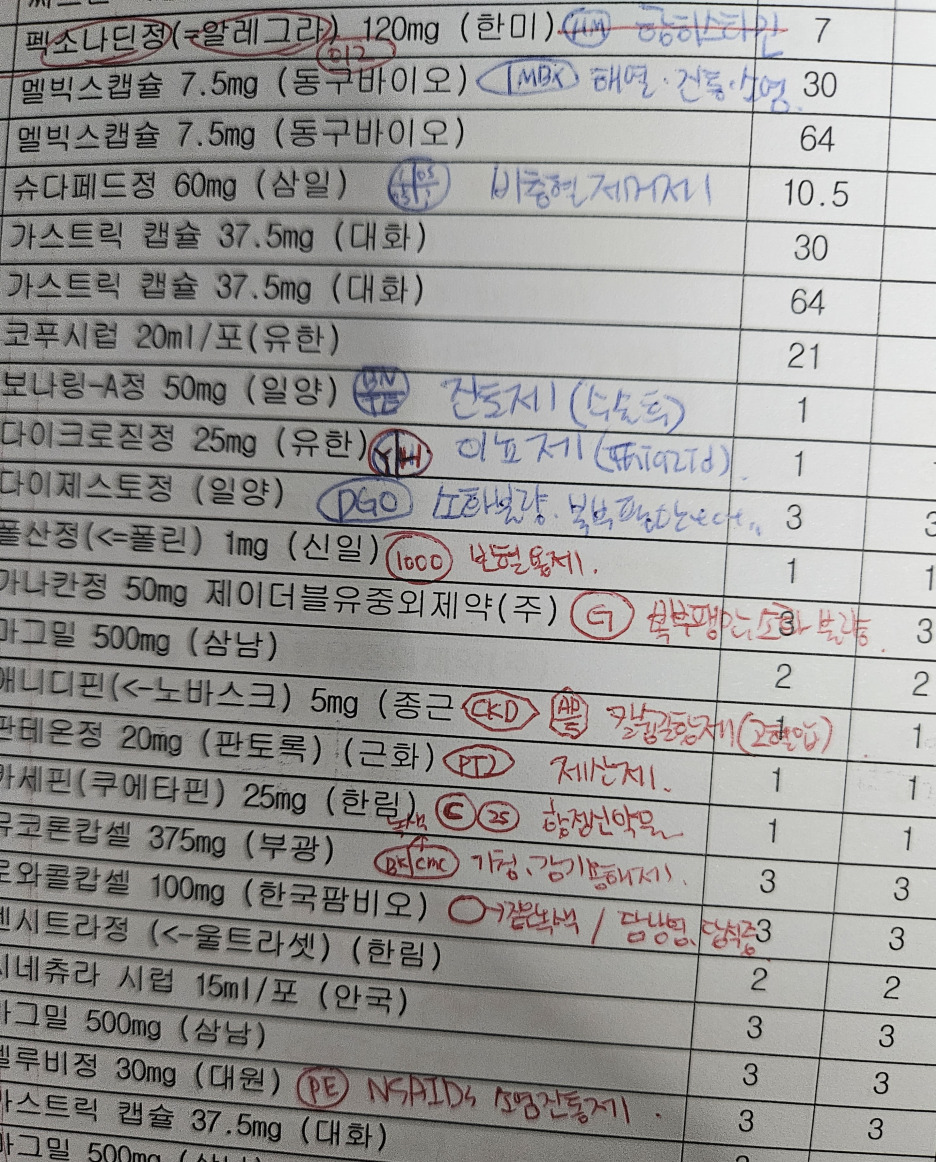 펙소나딘정(=알레그라) 120mg (한미) HM 항히스타민 7
멜빅스캡슐 7.5mg (동구바이오) MBX 해열·진통·소염 30
멜빅스캡슐 7.5mg (동구바이오) 64
슈다페드정 60mg (삼일) 비충혈제거제 10.5
가스트릭 캡슐 37.5mg (대화) 30
가스트릭 캡슐 37.5mg (대화) 64
코푸시럽 20ml/포(유한) 21
보나링-A정 50mg (일양) 진토제 1
다이크로짇정 25mg (유한) YH 이뇨제 1
다이제스토정 (일양) DGO 소화불량·복부팽만 3 3
폴산정(<=폴린) 1mg (신일) 1000 보혈용제. 1 1
가나칸정 50mg 제이더블유중외제약(주) G 복부팽만, 소화불량 3 3
마그밀 500mg (삼남) 2 2
애니디핀(<-노바스크) 5mg (종근 CKD 칼슘길항제(고혈압) 1 1
판테온정 20mg (판토록) (근화) PT2 제산제. 1 1
카세핀(쿠에타핀) 25mg (한림) C 25 항정신약물 1 1
뮤코론캅셀 375mg (부광) BK CMC 기침, 감기용해제. 3 3
로와콜캅셀 100mg (한국팜비오) →짙은녹색 / 담낭염, 담석증 3 3
센시트라정 (<-울트라셋) (한림) 2 2
시네츄라 시럽 15ml/포 (안국) 3 3
마그밀 500mg (삼남) 3 3
펠루비정 30mg (대원) PE NSAIDs 소염진통제. 3 3
가스트릭 캡슐 37.5mg (대화)
마그밀 500mg